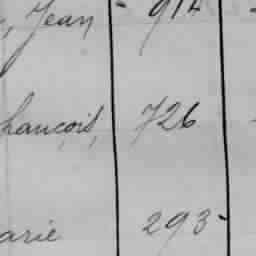 , Jean 914
francois, 726
arie 293